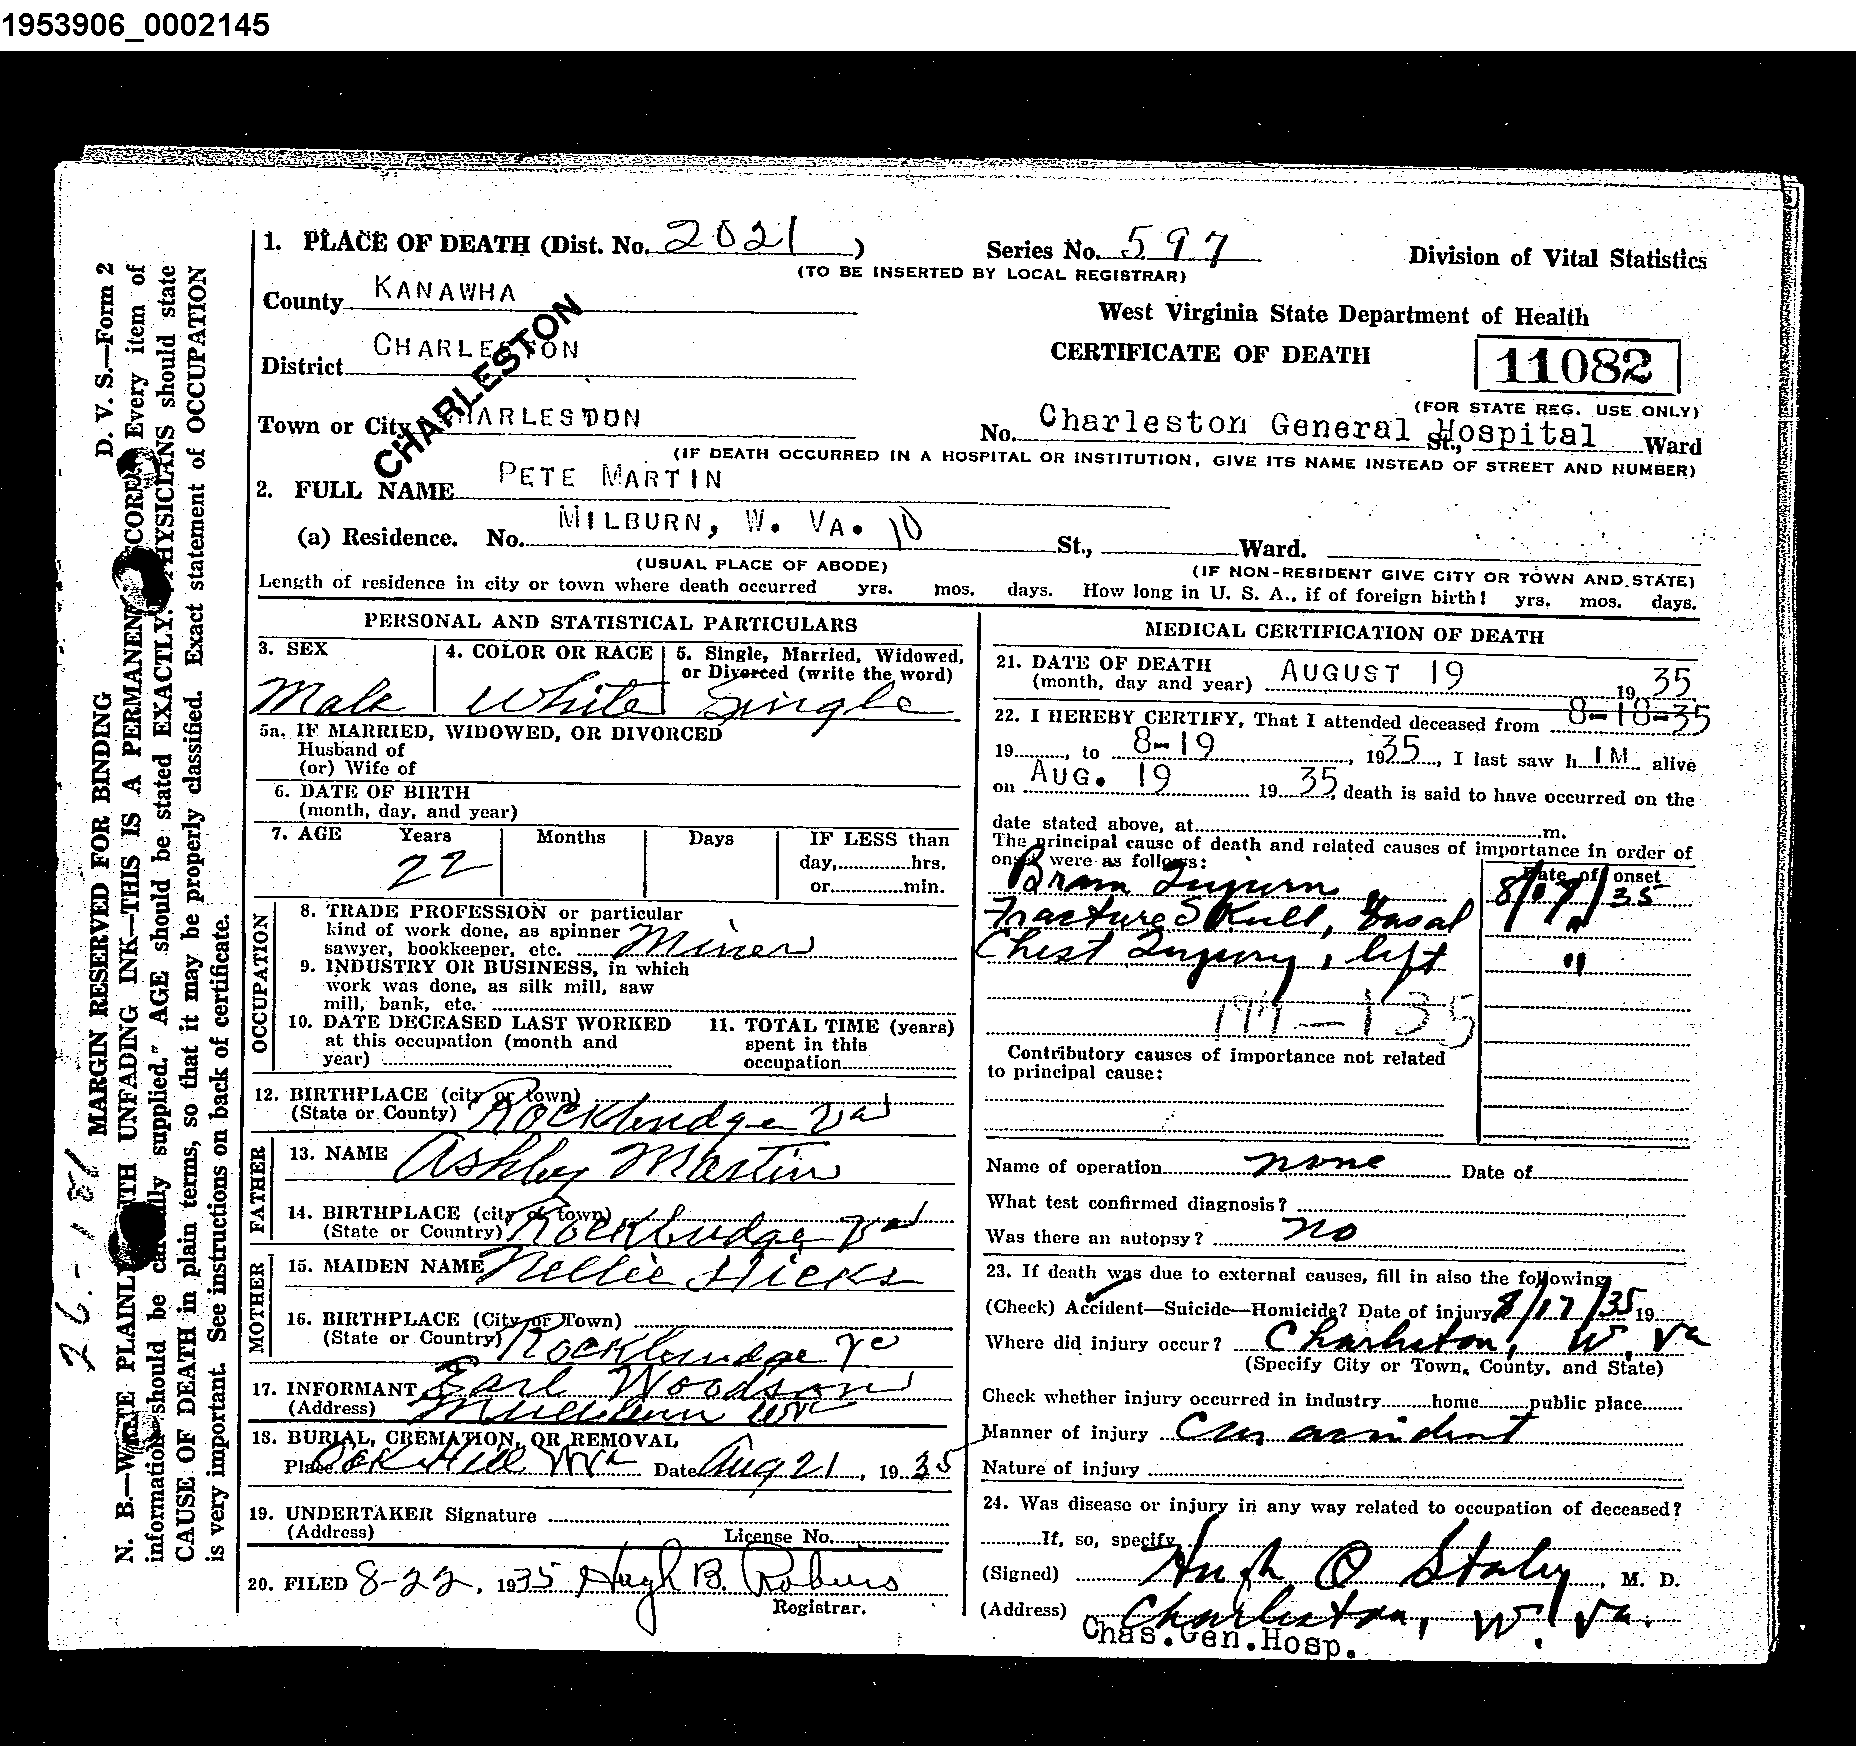 1953906_0002145
1. PLACE OF DEATH (Dist. No. 2021 )
Series No. 597
Division of Vital Statistics
(TO BE INSERTED BY LOCAL REGISTRAR)
County KANAWHA
West Virginia State Department of Health
CERTIFICATE OF DEATH
11082
(FOR STATE REG. USE ONLY)
District CHARLESTON
CHARLESTON
Town or City CHARLESTON
No. Charleston General Hospital St., Ward
(IF DEATH OCCURRED IN A HOSPITAL OR INSTITUTION, GIVE ITS NAME INSTEAD OF STREET AND NUMBER)
2. FULL NAME PETE MARTIN
(a) Residence. No. MILBURN, W. VA. 10 St., Ward.
(USUAL PLACE OF ABODE)
(IF NON-RESIDENT GIVE CITY OR TOWN AND STATE)
Length of residence in city or town where death occurred yrs. mos. days. How long in U. S. A., if of foreign birth! yrs. mos. days.
PERSONAL AND STATISTICAL PARTICULARS
3. SEX
Male
4. COLOR OR RACE
White
5. Single, Married, Widowed,
or Divorced (write the word)
Single
5a. IF MARRIED, WIDOWED, OR DIVORCED
Husband of
(or) Wife of
6. DATE OF BIRTH
(month, day, and year)
7. AGE Years Months Days IF LESS than
22
day, hrs.
or min.
OCCUPATION
8. TRADE PROFESSION or particular
kind of work done, as spinner
sawyer, bookkeeper, etc. Miner
9. INDUSTRY OR BUSINESS, in which
work was done, as silk mill, saw
mill, bank, etc.
10. DATE DECEASED LAST WORKED
at this occupation (month and
year)
11. TOTAL TIME (years)
spent in this
occupation
12. BIRTHPLACE (city or town)
(State or County) Rockbridge Va
FATHER
13. NAME Ashby Martin
14. BIRTHPLACE (city or town)
(State or Country) Rockbridge Va
MOTHER
15. MAIDEN NAME Nellie Hicks
16. BIRTHPLACE (City or Town)
(State or Country) Rockbridge Va
17. INFORMANT Earl Woodson
(Address) Milburn WVa
18. BURIAL, CREMATION, OR REMOVAL
Place Oak Hill WVa Date Aug 21, 1935
19. UNDERTAKER Signature
(Address) License No.
20. FILED 8-22, 1935 Hugh B. Robins
Registrar.
MEDICAL CERTIFICATION OF DEATH
21. DATE OF DEATH
(month, day and year) AUGUST 19 19 35
22. I HEREBY CERTIFY, That I attended deceased from 8-18-35
19 , to 8-19 , 1935, I last saw h IM alive
on AUG. 19 19 35, death is said to have occurred on the
date stated above, at m.
The principal cause of death and related causes of importance in order of
onset were as follows:
Date of onset
Brain Injury 8/17/35
Fracture Skull, basal "
Chest Injury, left "
Contributory causes of importance not related
to principal cause:
Name of operation none Date of
What test confirmed diagnosis?
Was there an autopsy? no
23. If death was due to external causes, fill in also the following
(Check) Accident—Suicide—Homicide? Date of injury 8/17/35 19
Where did injury occur? Charleston, W. Va
(Specify City or Town, County, and State)
Check whether injury occurred in industry home public place
Manner of injury Car accident
Nature of injury
24. Was disease or injury in any way related to occupation of deceased?
If, so, specify
(Signed) Hugh O Staley, M. D.
(Address) Charleston, W. Va.
Chas.Gen.Hosp.
D. V. S.—Form 2
MARGIN RESERVED FOR BINDING
N. B.—WRITE PLAINLY WITH UNFADING INK—THIS IS A PERMANENT RECORD. Every item of
information should be carefully supplied. AGE should be stated EXACTLY. PHYSICIANS should state
CAUSE OF DEATH in plain terms, so that it may be properly classified. Exact statement of OCCUPATION
is very important. See instructions on back of certificate.